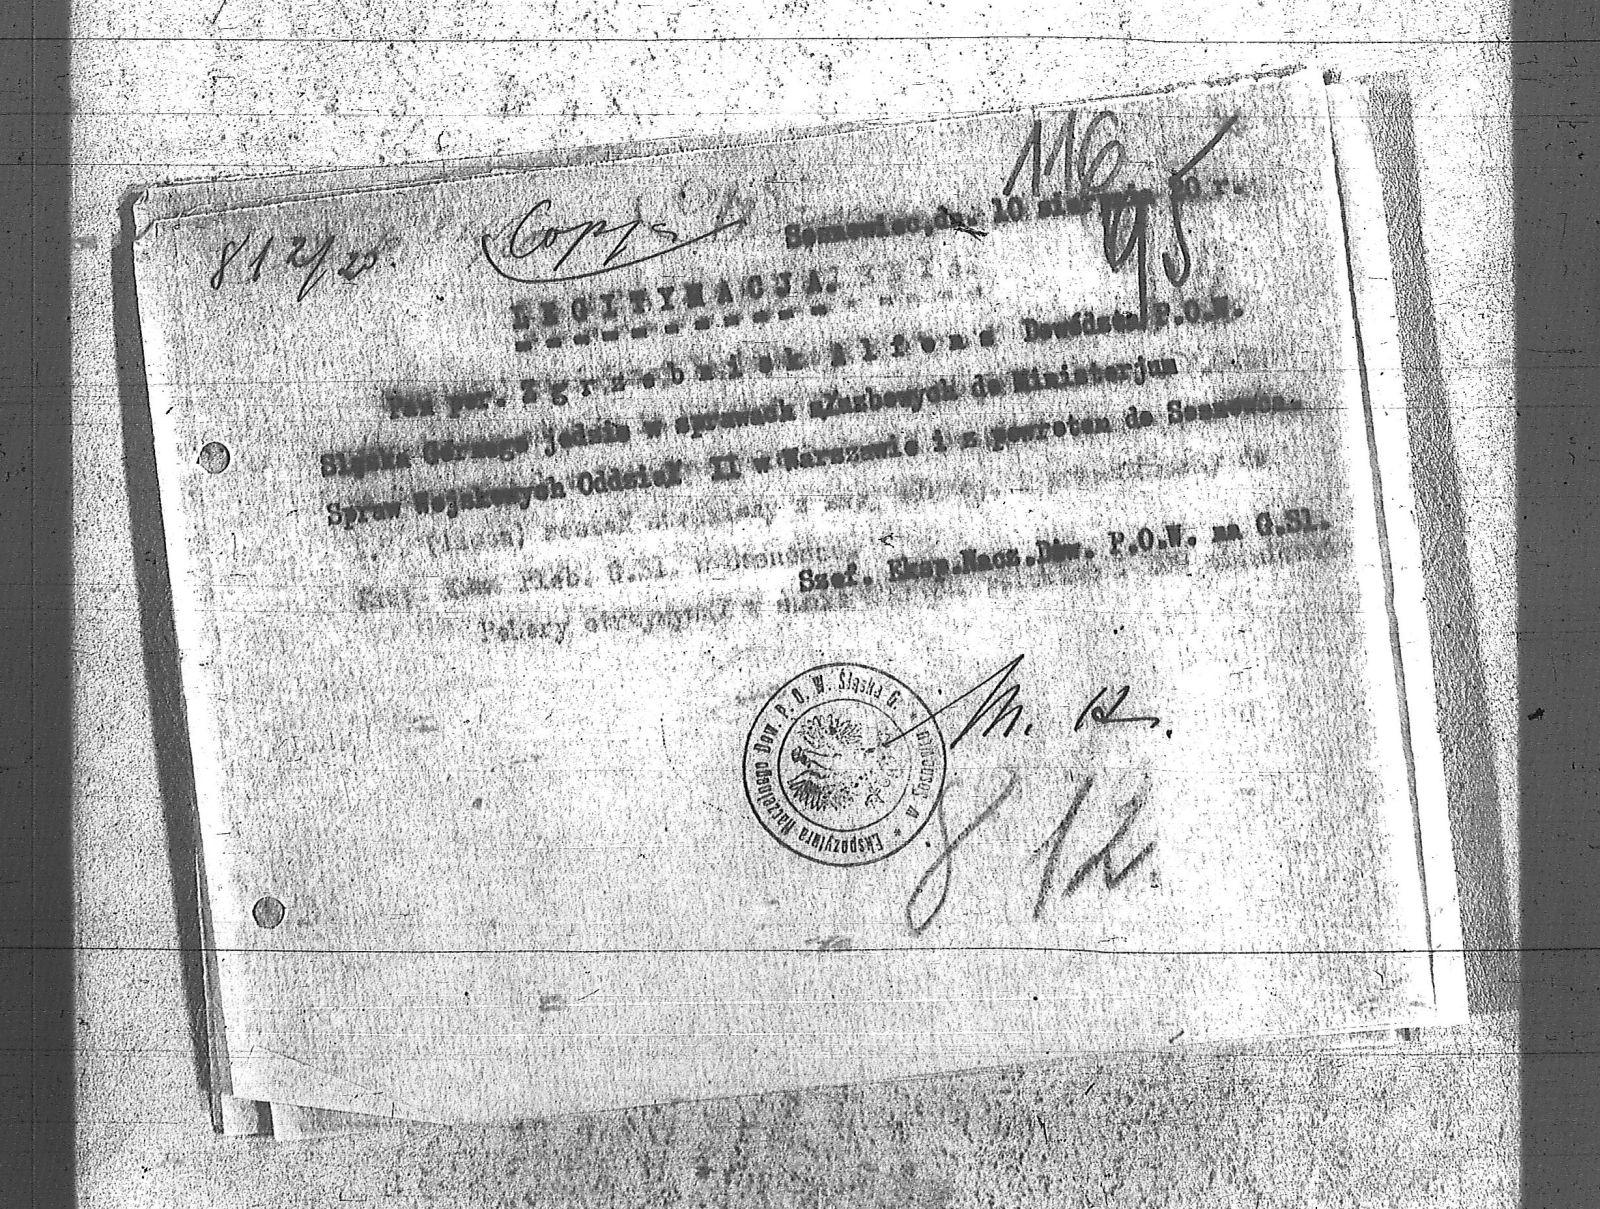 116
95
812/20.
Copja
Sosnowiec, dn. 10 sierpnia 20 r.
LEGITYMACJA.
Pan por. Zgrzebniok Alfons Dowództa P.O.W.
Śląska Górnego jedzie w sprawach służbowych do Ministerjum
Spraw Wojskowych Oddział II w Warszawie i z powrotem do Sosnowca.
Szef. Eksp.Nacz.Dów. P.O.W. na G.Sl.
Pobory otrzymywał w
M. K.
Ekspozytura Naczelnego Dow. P. O. W. Śląska G. *
812.